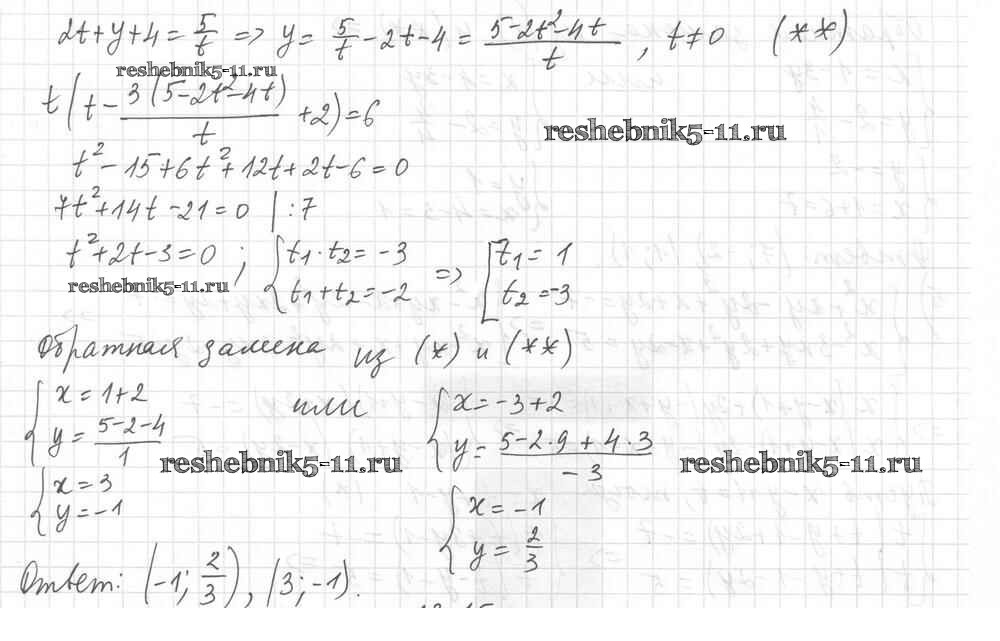 2t+y+4=5/t => y=5/t-2t-4=(5-2t²-4t)/t, t≠0 (**)
reshebnik5-11.ru
t(t-3(5-2t²-4t)/t+2)=6
reshebnik5-11.ru
t²-15+6t²+12t+2t-6=0
7t²+14t-21=0 |:7
t²+2t-3=0; {t₁·t₂=-3 t₁+t₂=-2 => [t₁=1 t₂=-3
reshebnik5-11.ru
Обратная замена из (*) и (**)
{x=1+2 y=(5-2-4)/1 или {x=-3+2 y=(5-2·9+4·3)/-3
reshebnik5-11.ru reshebnik5-11.ru
{x=3 y=-1 {x=-1 y=2/3
Ответ: (-1; 2/3), (3; -1).